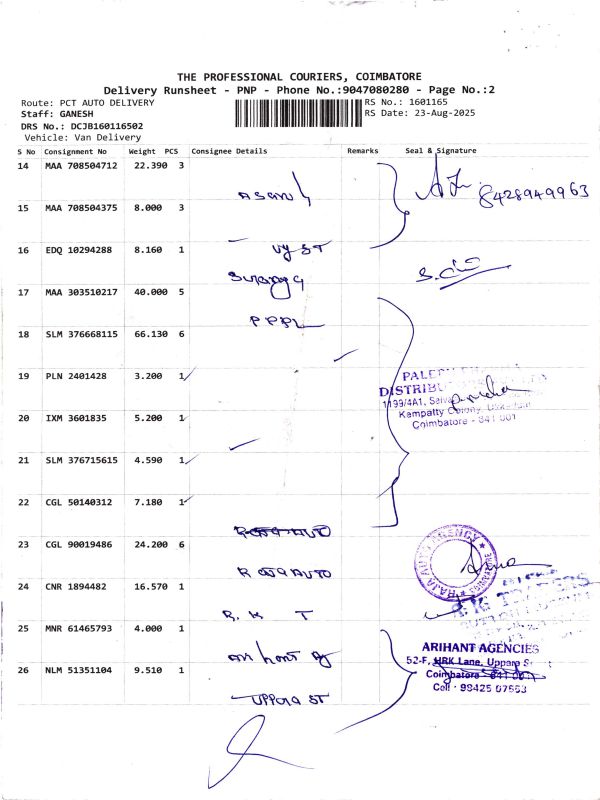 THE PROFESSIONAL COURIERS, COIMBATORE
Delivery Runsheet - PNP - Phone No.:9047080280 - Page No.:2
Route: PCT AUTO DELIVERY
RS No.: 1601165
Staff: GANESH
RS Date: 23-Aug-2025
DRS No.: DCJB160116502
Vehicle: Van Delivery
S No Consignment No Weight PCS Consignee Details Remarks Seal & Signature
14 MAA 708504712 22.390 3
8428949963
15 MAA 708504375 8.000 3
16 EDQ 10294288 8.160 1
17 MAA 303510217 40.000 5
PPPL
18 SLM 376668115 66.130 6
19 PLN 2401428 3.200 1
DISTRIBU
1199/4A1,
20 IXM 3601835 5.200 1
Kempatty Colony,
Coimbatore - 641 001
21 SLM 376715615 4.590 1
22 CGL 50140312 7.180 1
RAJA AUTO
23 CGL 90019486 24.200 6
RAJA AUTO AGENCY
COIMBATORE
RAJA AUTO
24 CNR 1894482 16.570 1
R.K. TRADERS
R. K T
25 MNR 61465793 4.000 1
ARIHANT AGENCIES
52-F, HRK Lane, Uppara St
26 NLM 51351104 9.510 1
Coimbatore - 641 001
Cell : 98425 07553
UPPara ST